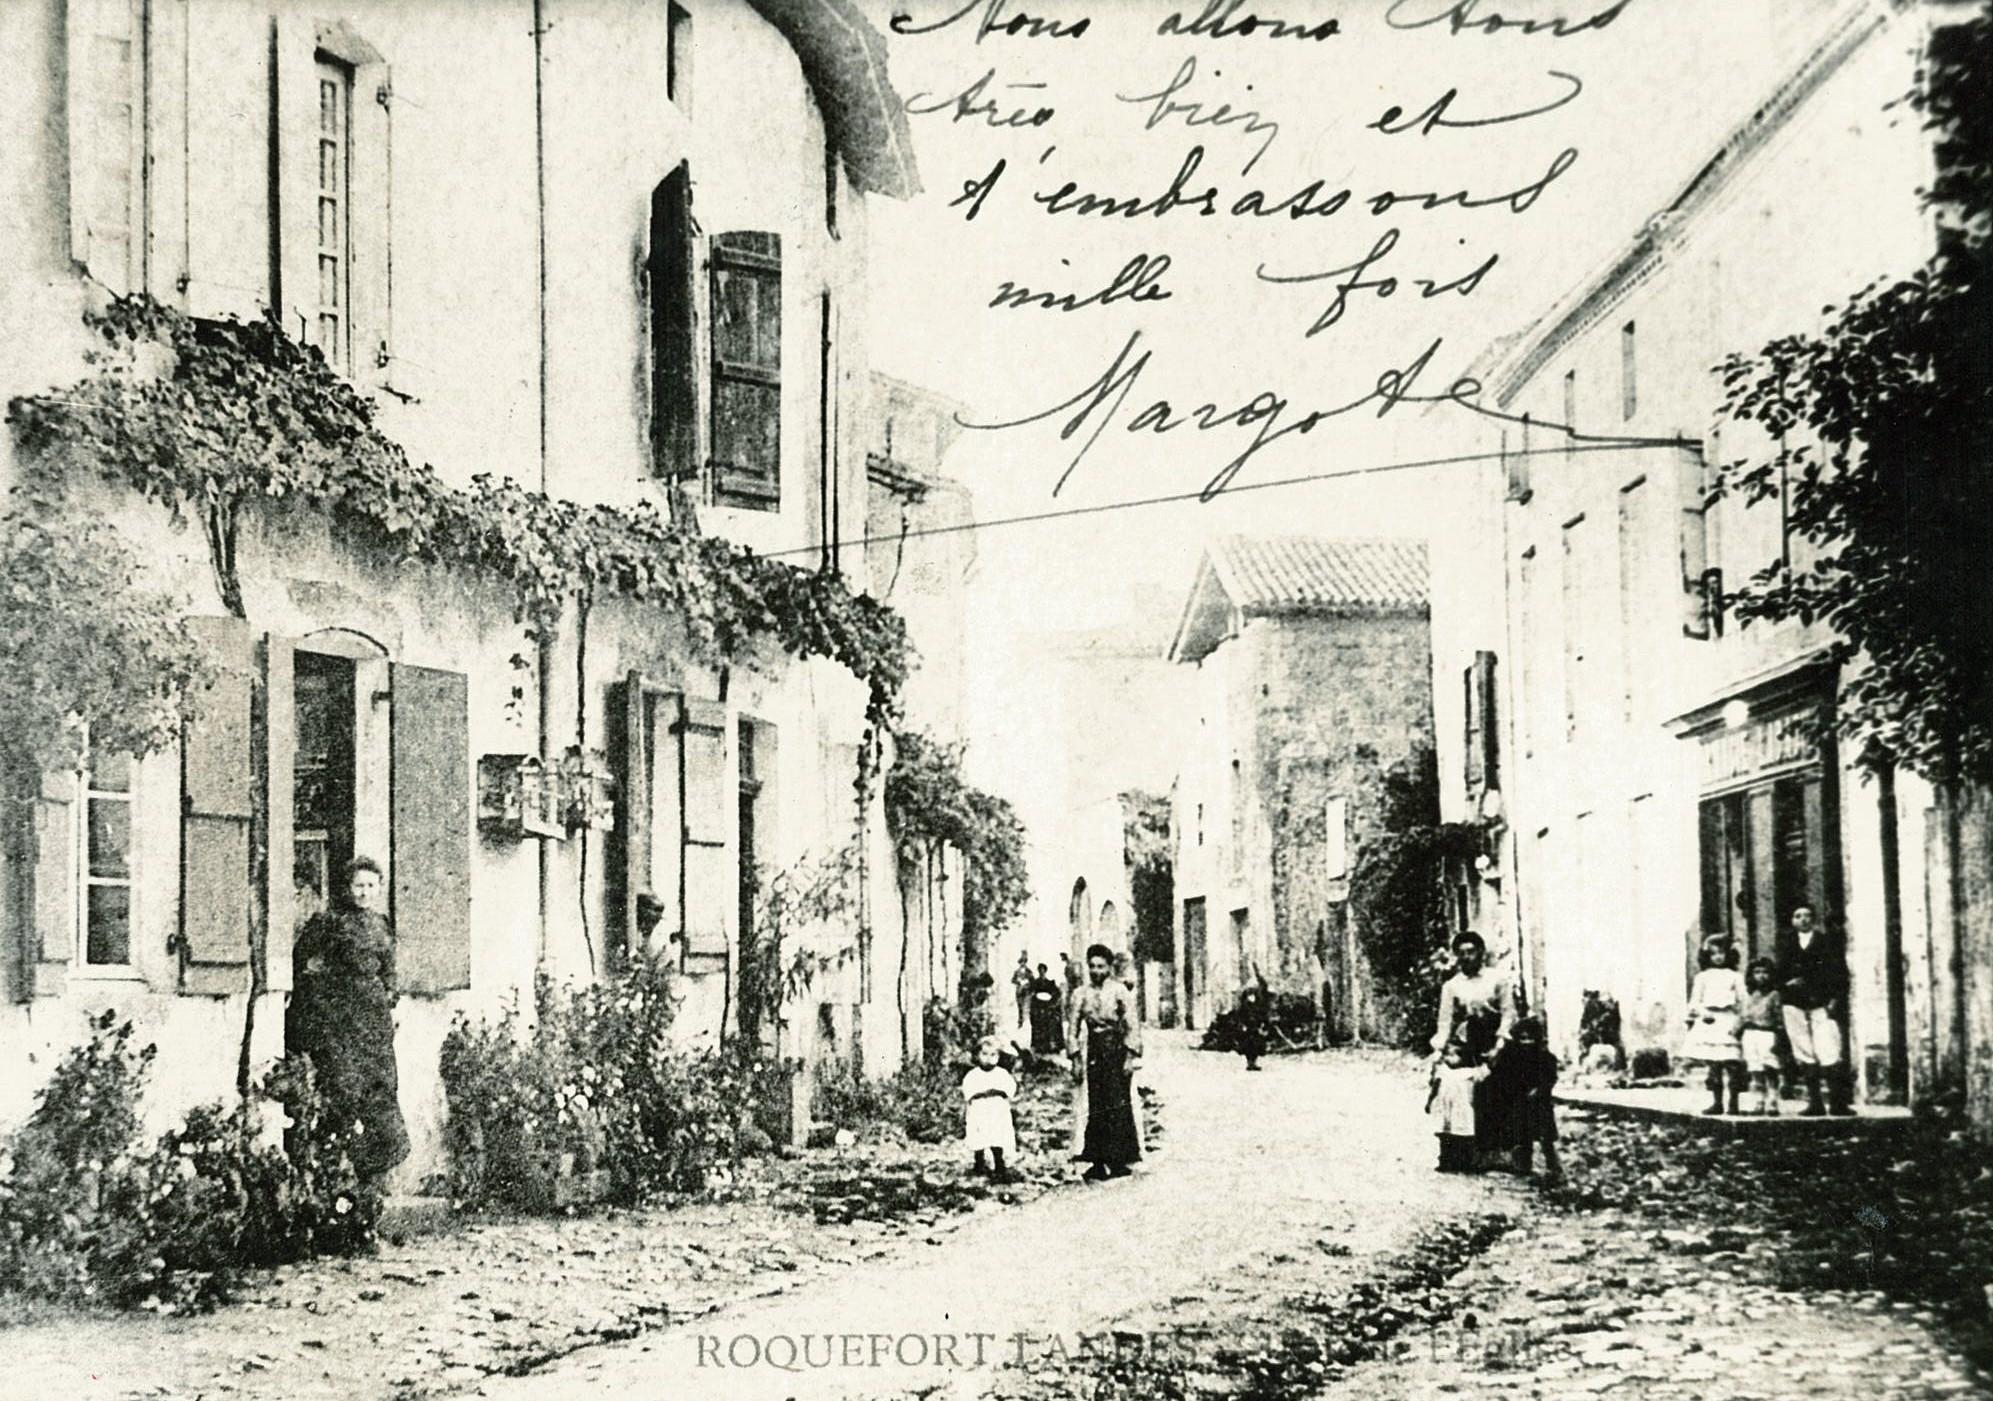 Nous allons tous
très bien et
t'embrassons
mille fois
Margote
ROQUEFORT LANDES Rue de l'Eglise